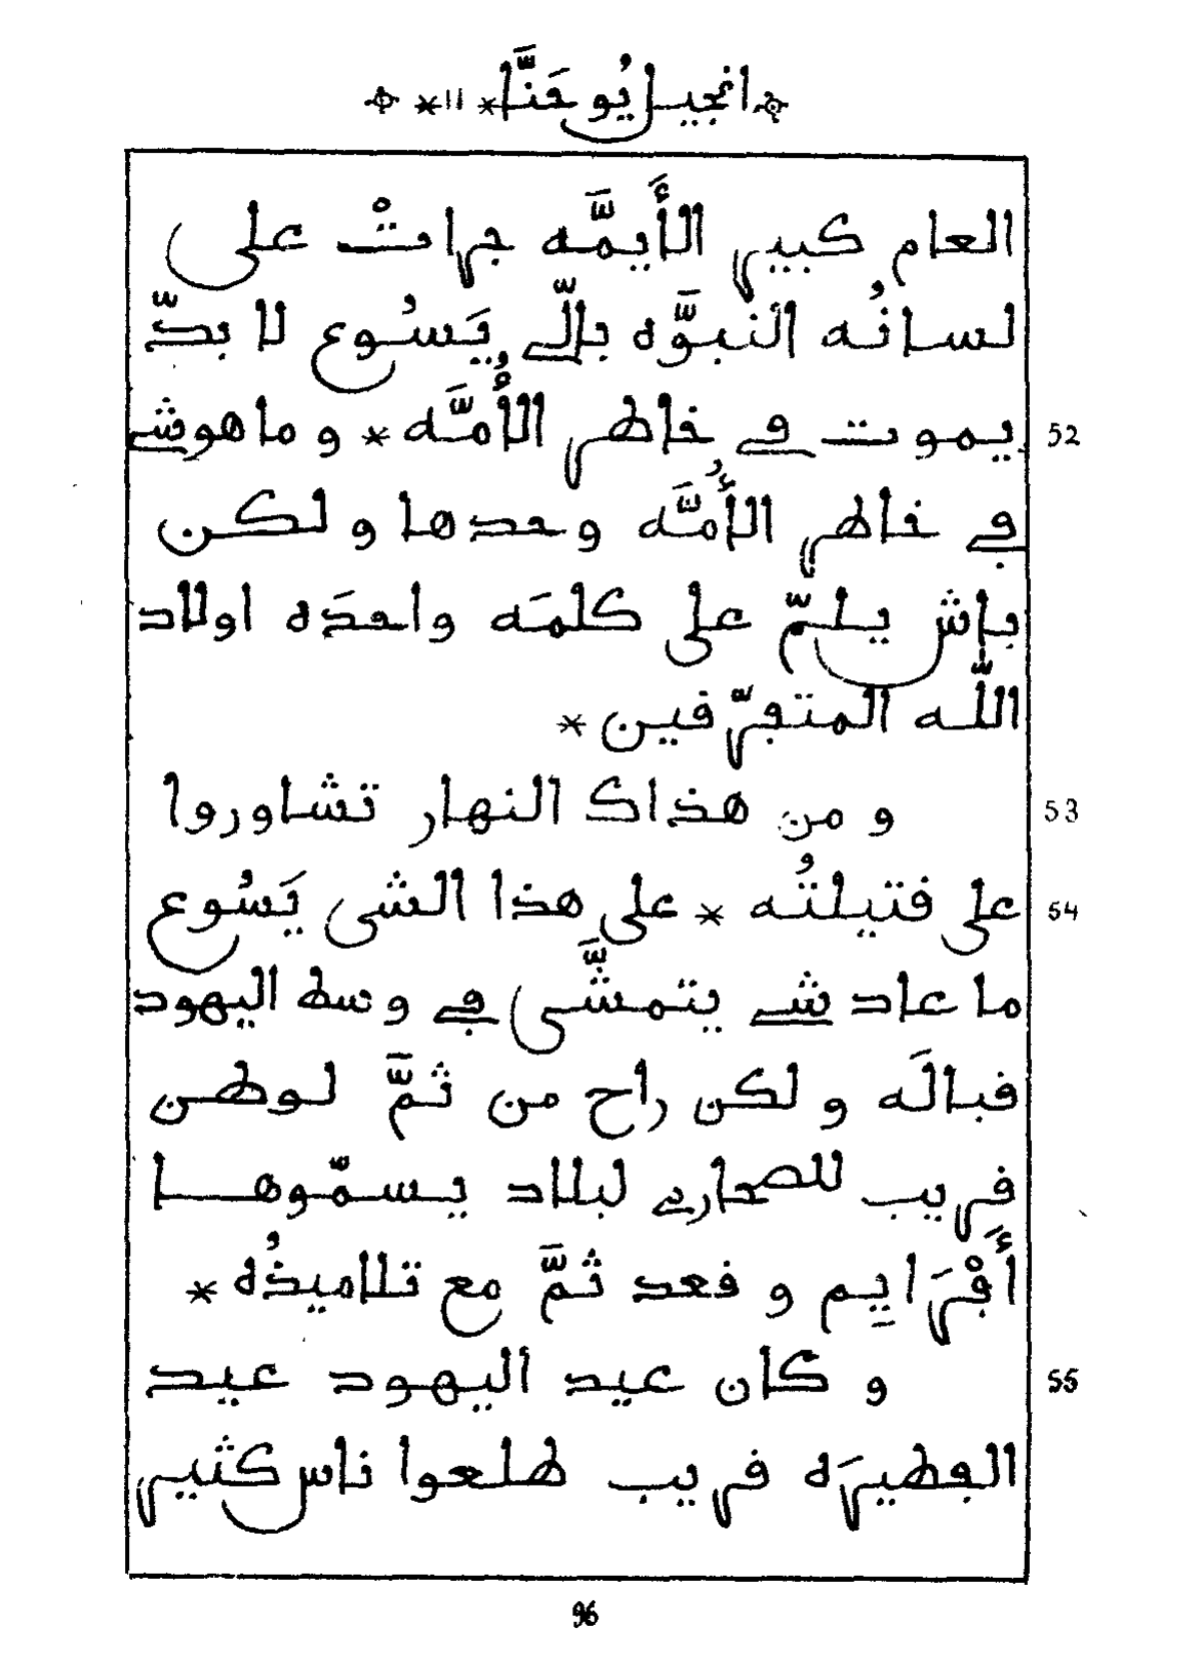 انجيل يُوحَنَّا * ١١ *
العام كبير الأَيمَّه جراتْ على
لسانُه النبوَّه بالّي يَسُوع لا بدّ
52 يموت في خاطر الأُمَّه * و ما هوشي
في خاطر الأُمَّه وحدها و لكن
باش يلمّ على كلمَه واحدَه اولاد
اللّه المتفرّقين *
53 و من هذاك النهار تشاوروا
54 على قتيلتُه * على هذا الشي يَسُوع
ما عاد شي يتمشَّى في وسط اليهود
قبالَه و لكن راح من ثمَّ لوطن
قريب للصحاري لبلاد يسمّوها
أَفْرَايِم و قعد ثمَّ مع تلاميذُه *
55 و كان عيد اليهود عيد
الفطيرَه قريب طلعوا ناس كثير
96